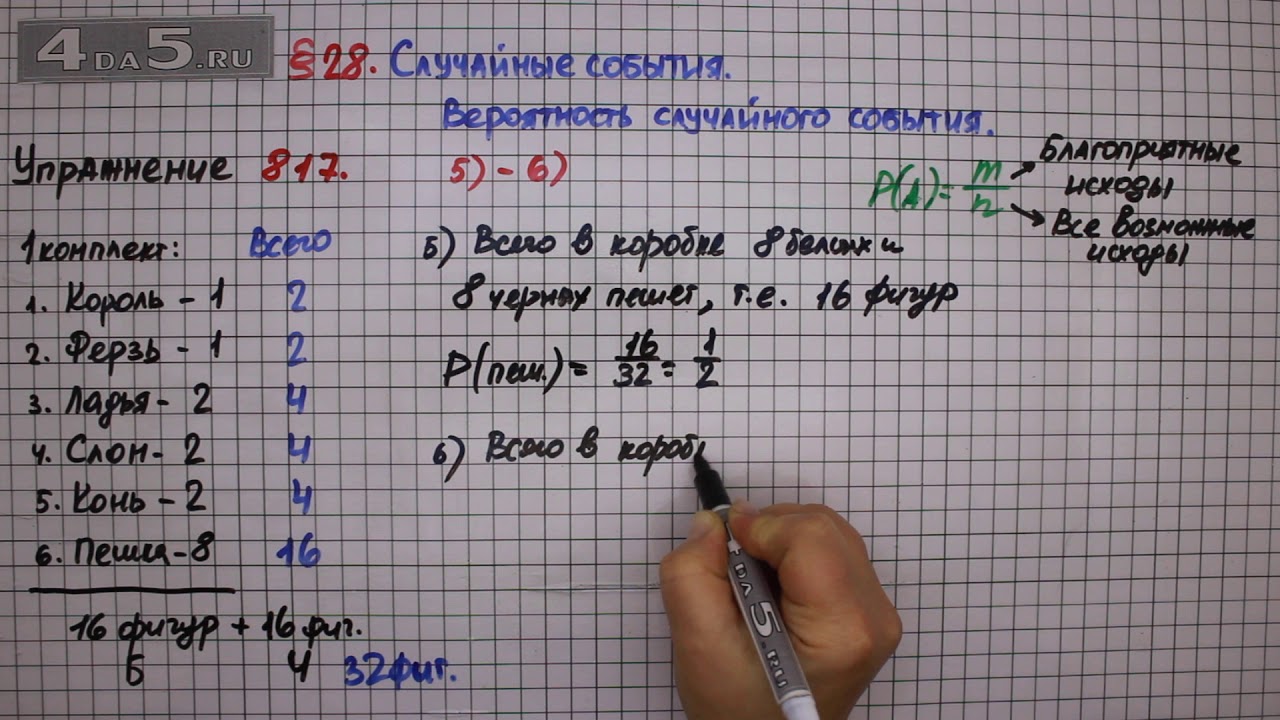 4DA5.RU
§28. Случайные события.
Вероятность случайного события.
Упражнение 817. 5)-6)
P(A)= m/n
Благоприятные
исходы
Все возможные
исходы
1 комплект: Всего
1. Король - 1 2
2. Ферзь - 1 2
3. Ладья - 2 4
4. Слон - 2 4
5. Конь - 2 4
6. Пешка - 8 16
16 фигур + 16 фиг.
Б Ч 32 фиг.
5) Всего в коробке 8 белых и
8 черных пешек, т.е. 16 фигур
P(пеш.)= 16/32 = 1/2
6) Всего в короб
4DA5.RU